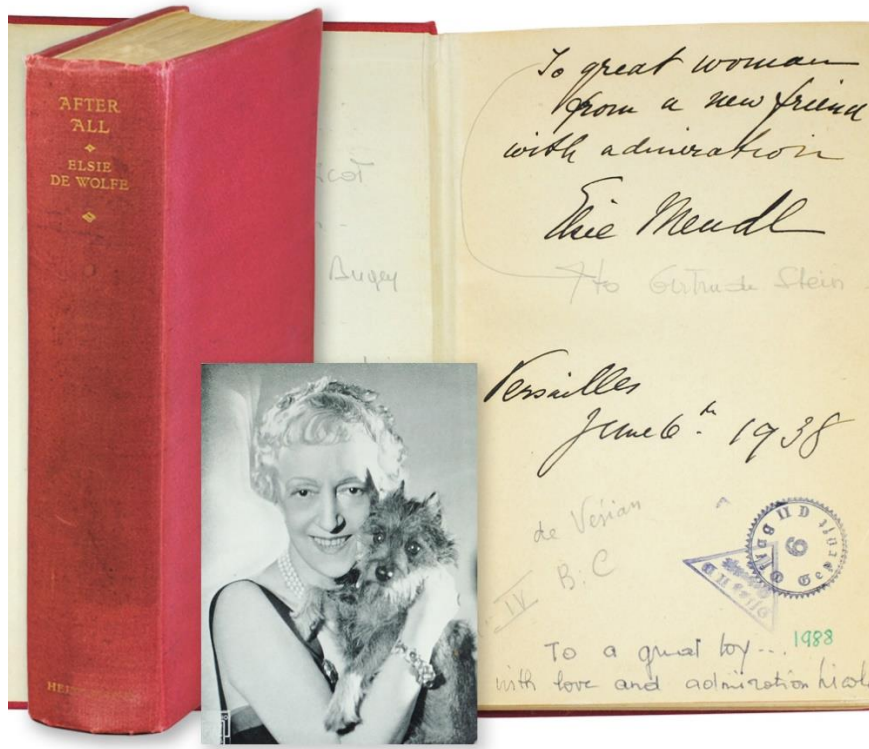 AFTER
ALL
ELSIE
DE WOLFE
To great woman
from a new friend
with admiration
Elsie Mendl
to Gertrude Stein
Versailles
June 6th 1938
de Vesian
IV B:C
6
1988
To a great boy...
with love and admiration